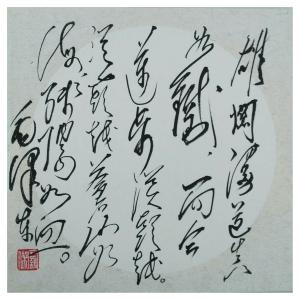 雄關漫道真
如鐵,而今
邁步從頭越。
從頭越蒼山如
海,殘陽如血。
毛澤東